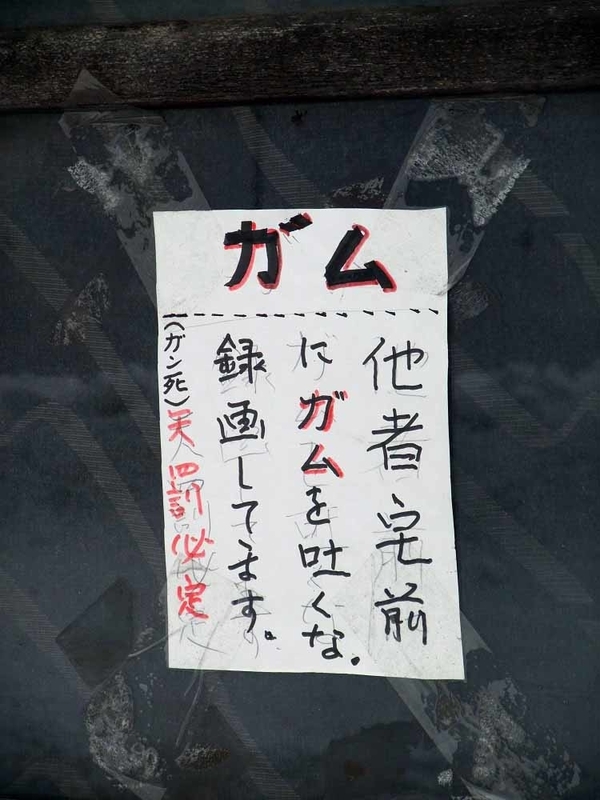 ガム
他者宅前
にガムを吐くな。
録画してます。
（ガン死）天罰必定